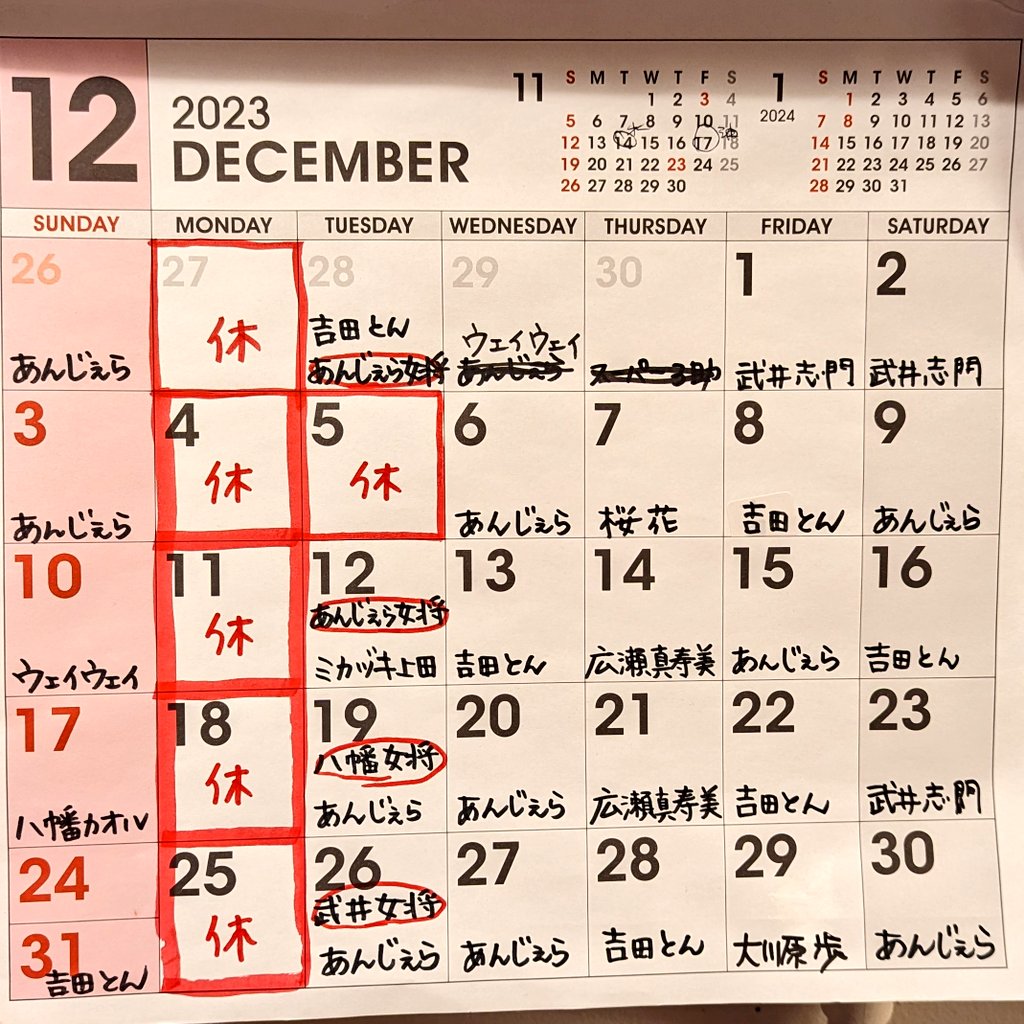 12
2023
DECEMBER
11
S M T W T F S
1 2 3 4
5 6 7 8 9 10 11
12 13 14 15 16 17 18
19 20 21 22 23 24 25
26 27 28 29 30
1
2024
S M T W T F S
1 2 3 4 5 6
7 8 9 10 11 12 13
14 15 16 17 18 19 20
21 22 23 24 25 26 27
28 29 30 31
SUNDAY MONDAY TUESDAY WEDNESDAY THURSDAY FRIDAY SATURDAY
26 27 28 29 30 1 2
休
吉田とん ウェイウェイ
あんじぇら あんじぇら女将 あんじぇら スーパー3助 武井志門 武井志門
3 4 5 6 7 8 9
休 休
あんじぇら あんじぇら 桜花 吉田とん あんじぇら
10 11 12 13 14 15 16
休 あんじぇら女将
ウェイウェイ ミカヅキ上田 吉田とん 広瀬真寿美 あんじぇら 吉田とん
17 18 19 20 21 22 23
休 八幡女将
八幡カオル あんじぇら あんじぇら 広瀬真寿美 吉田とん 武井志門
24 25 26 27 28 29 30
休 武井女将
31
吉田とん あんじぇら あんじぇら 吉田とん 大川原歩 あんじぇら